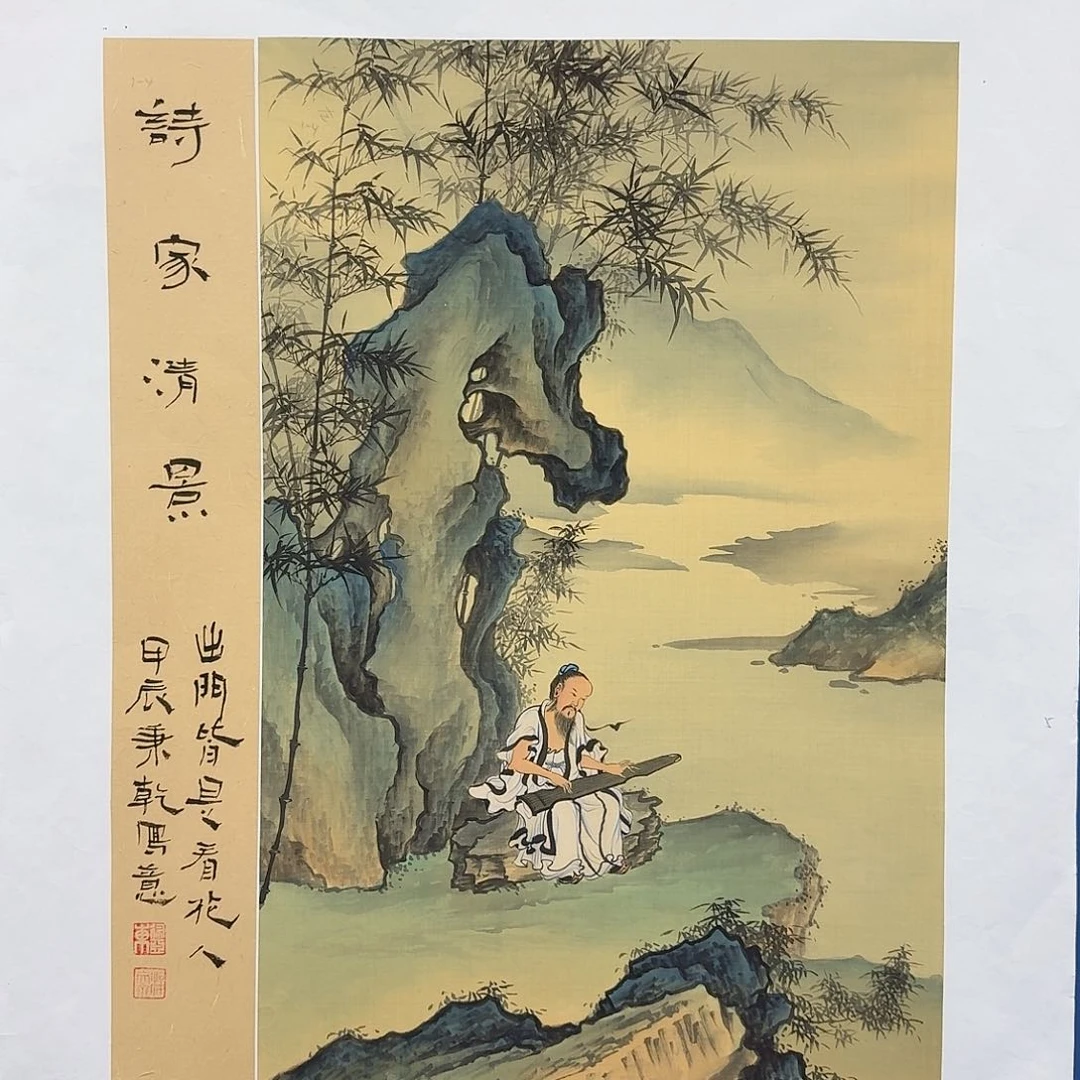 詩家清景
出門皆是看花人
甲辰秉乾寫意